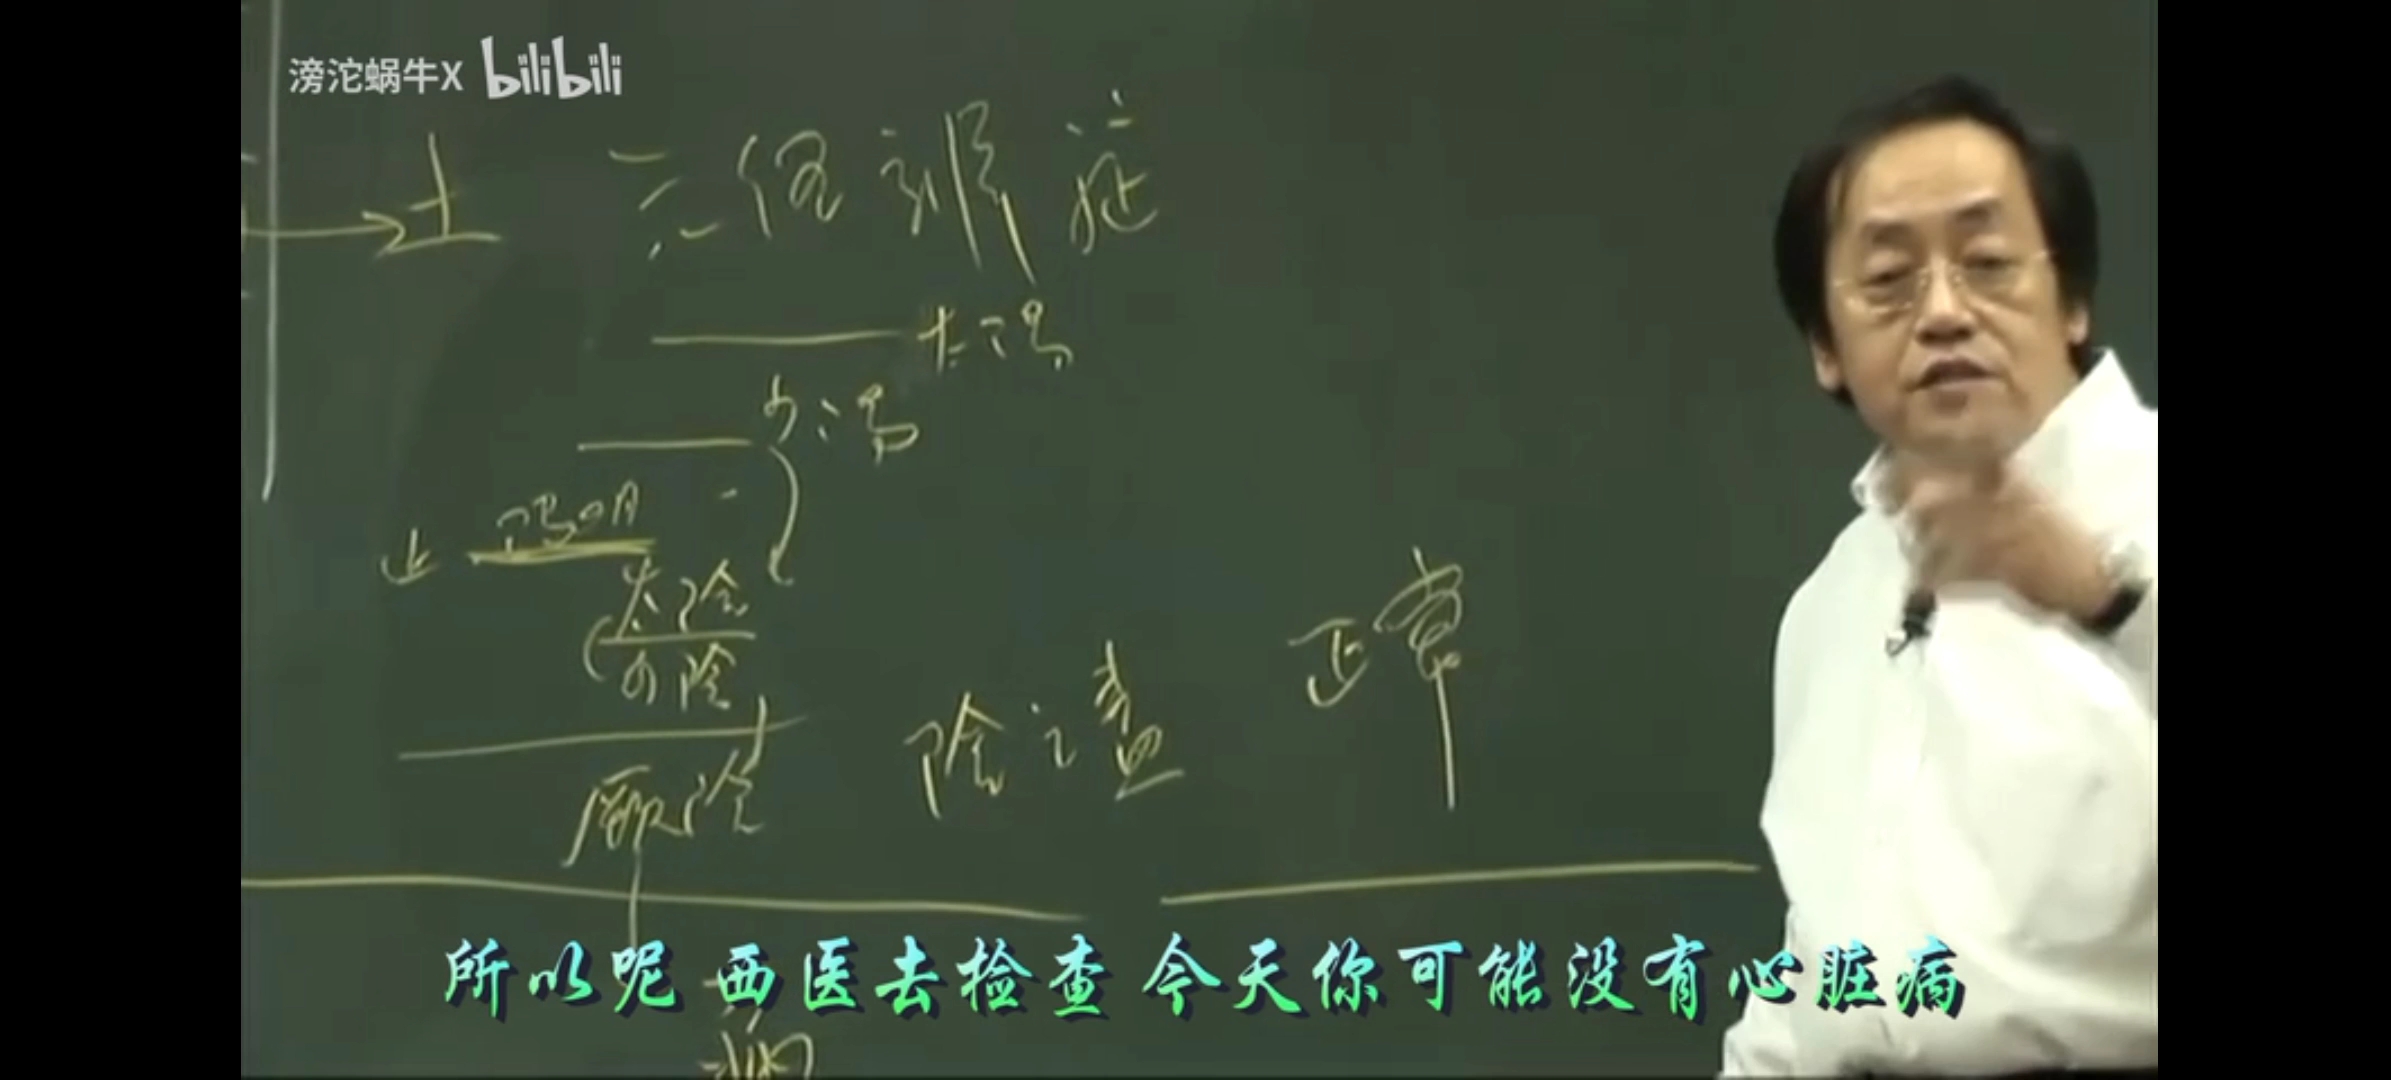 滂沱蜗牛X bilibili
土 六经辨证
太阳
少阳
阳明
太阴
少阴
厥阴
阴 正常
所以呢 西医去检查 今天你可能没有心脏病